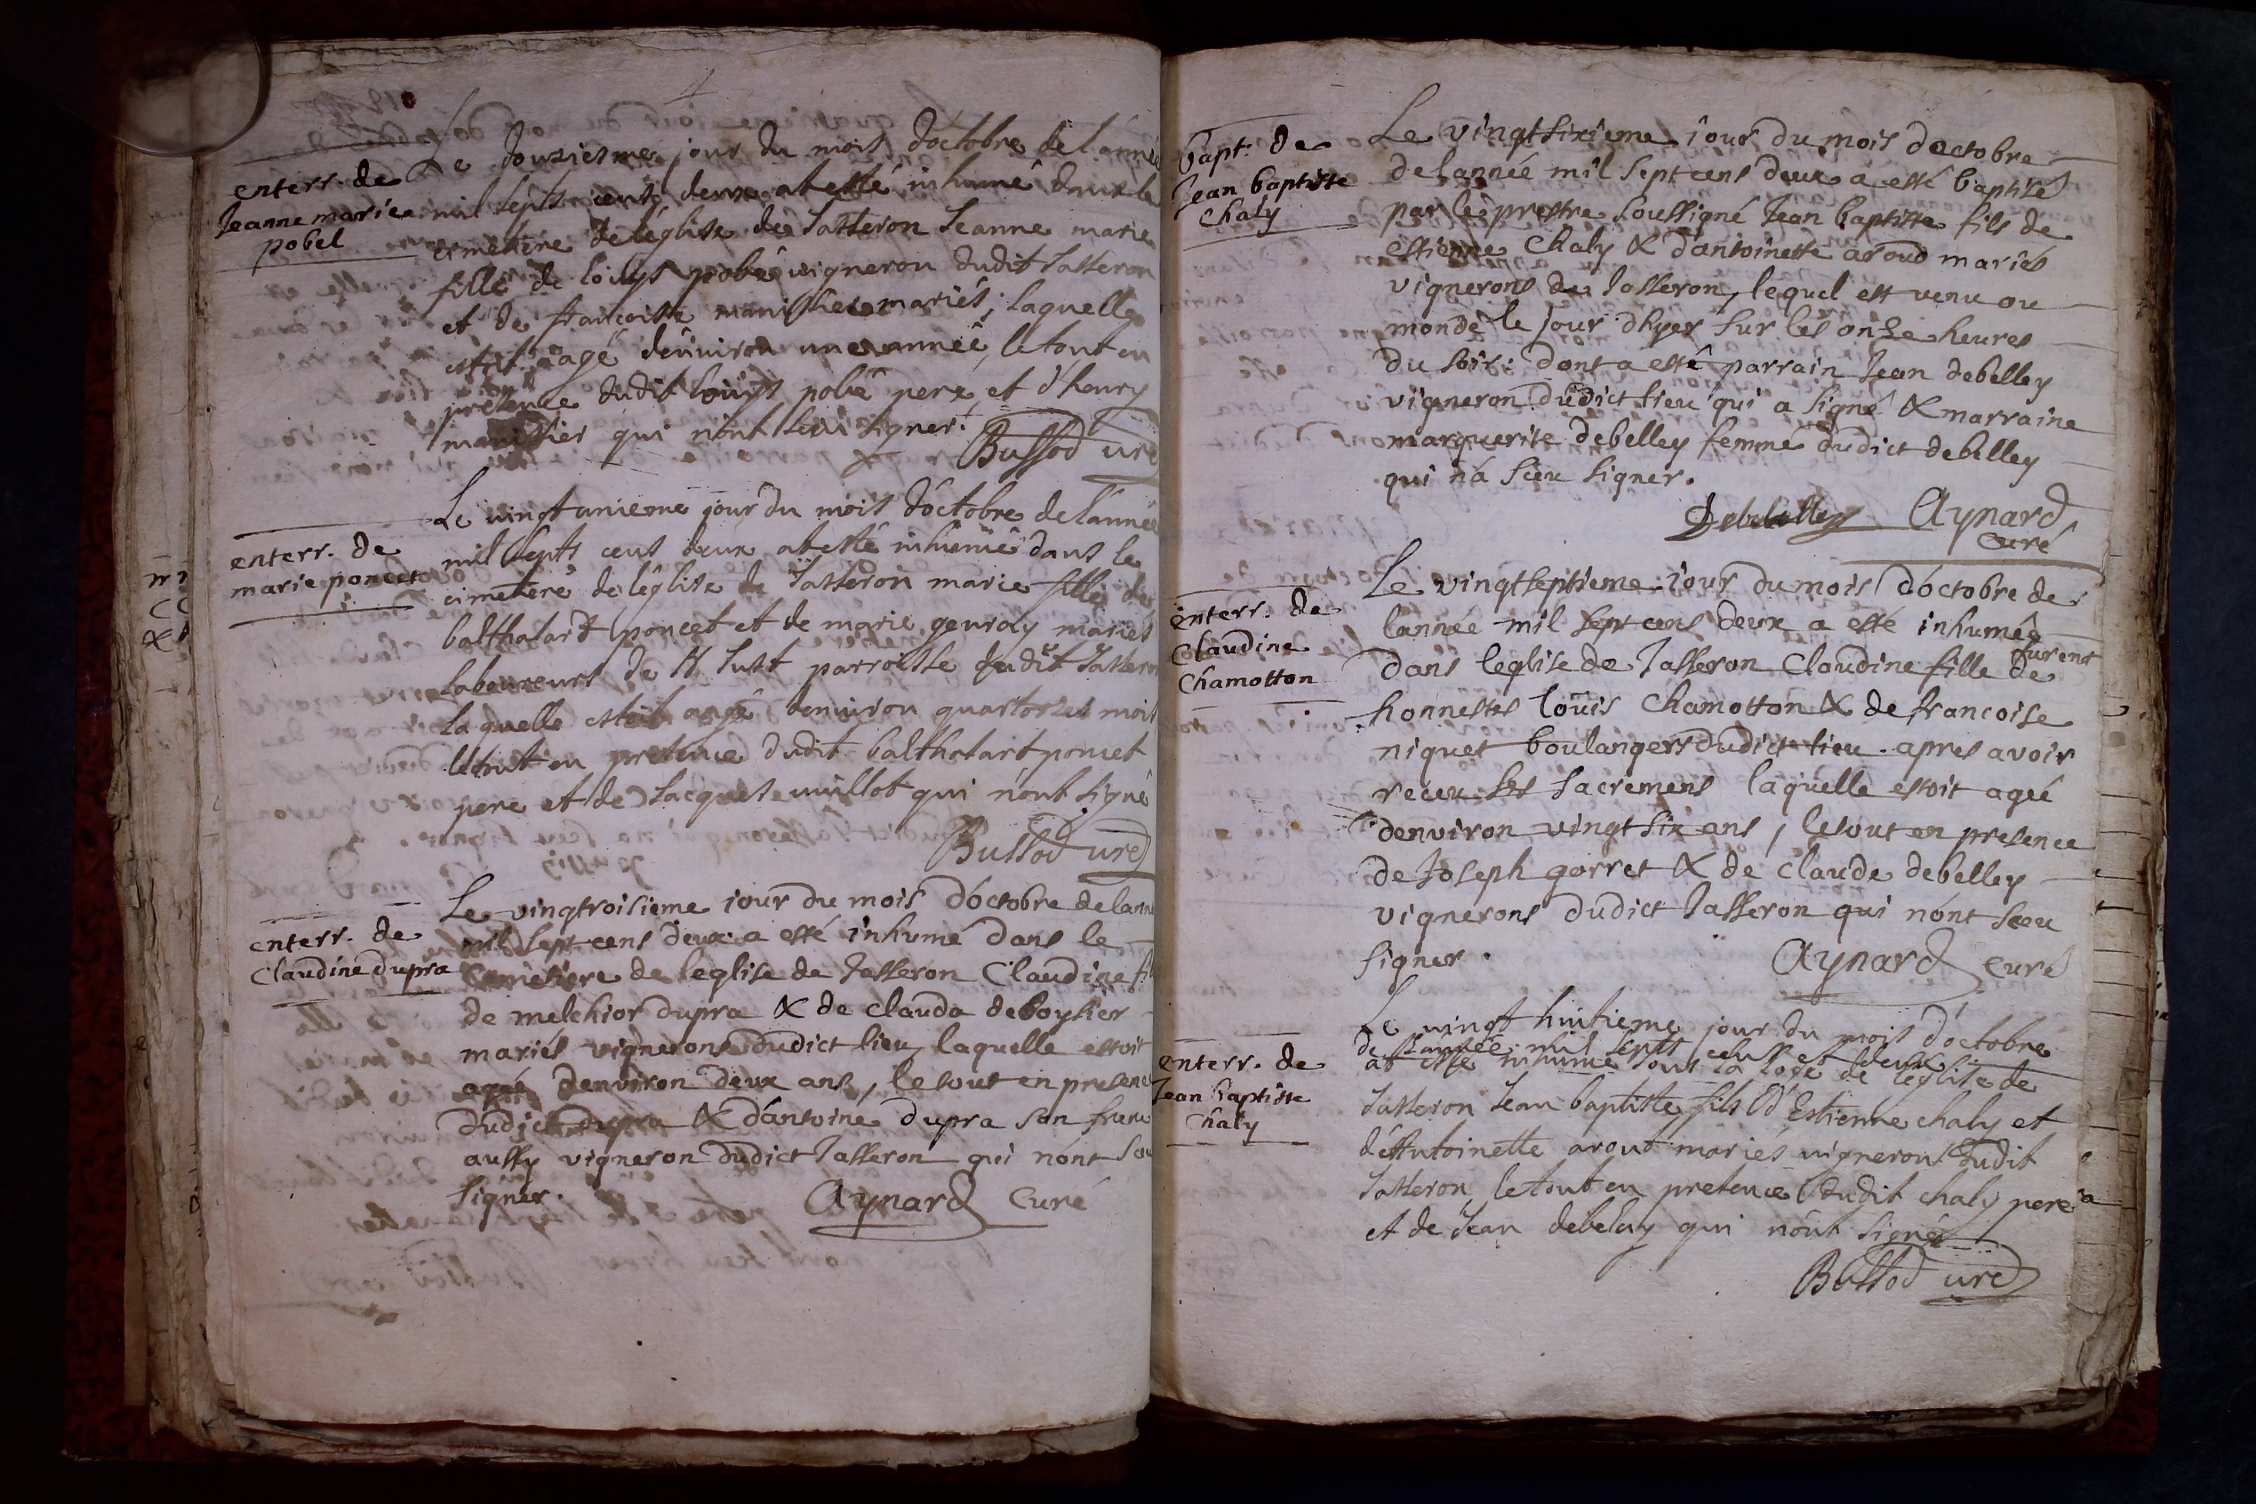 enterr. de
Jeanne marie
pobel
Le douziesme jour du mois d'octobre de l'année
mil septs cents deux at esté inhumé dans le
cimetiere de l'eglise de Jasseron Jeanne marie
fille de louys pobel vigneron dudit Jasseron
et de francoise manissier mariés, laquelle
estoit agé d'environ une année, le tout en
presence dudit louys pobel pere, et d'henry
manissier qui n'ont sceu signer.
Bussod curé
enterr. de
marie poncet
Le vingt unieme jour du mois d'octobre de l'année
mil septs cens deux at esté inhumé dans le
cimetiere de l'eglise de Jasseron marie fille de
balthasard poncet et de marie genray mariés
laboureurs de St Just parroisse dudit Jasseron
laquelle estoit agé d'environ quartorzes mois
le tout en presence dudit balthasart poncet
pere et de Jacques vuillot qui n'ont signé
Bussod curé
enterr. de
Claudine dupra
Le vingtroisieme iour du mois d'octobre de lanné
mil sept cens deux a esté inhumé dans le
Cimetiere de leglise de Jasseron Claudine fil
de melchior dupra & de clauda deboyer
mariés vignerons dudict lieu, laquelle estoit
agée denviron deux ans, le tout en presence
dudict dupra & d'antoine dupra son frere
aussy vigneron dudict Jasseron qui n'ont sceu
signer.
Aynard Curé
bapt. de
Jean baptiste
Chaly
Le vingtsixieme iour du mois doctobre
de lannée mil sept cens deux a esté baptisé
par le prestre soussigné Jean baptiste fils de
estienne Chaly & d'antoinette aroud mariés
vignerons de Jasseron, lequel est venu au
monde le jour d'hyer sur les onze heures
du soir. dont a esté parrain Jean debelley
vigneron dudict lieu qui a signé & marraine
marguerite debelley femme dudict debelley
qui n'a sceu signer.
Debelley Aynard
Curé
enterr. de
Claudine
Chamotton
Le vingtseptieme iour du mois d'octobre de
lannée mil sept cens deux a esté inhumée
dans leglise de Jasseron Claudine fille de furent
honnestes loüis Chamotton & de francoise
niquet boulangers dudict lieu. apres avoir
receu ses sacremens laquelle estoit agée
d'environ vingt six ans, le tout en presence
de Joseph gorret & de claude debelley
vignerons dudict Jasseron qui n'ont sceu
signer.
Aynard Curé
enterr. de
Jean baptiste
Chaly
Le vingt huitieme jour du mois d'octobre
de l'année mil septs cens et deux
at esté inhumé sous la loge de l'eglise de
Jasseron Jean baptiste fils d'Estienne chaly et
d'Antoinette aroud mariés vignerons dudit
Jasseron, le tout en presence dudit chaly pere
et de Jean debelay qui n'ont signé
Bussod curé